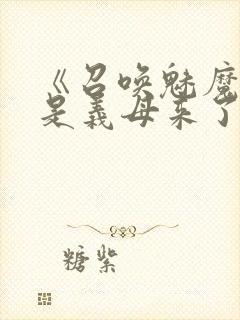 《召唤魅魔
是义母来了
糖紫